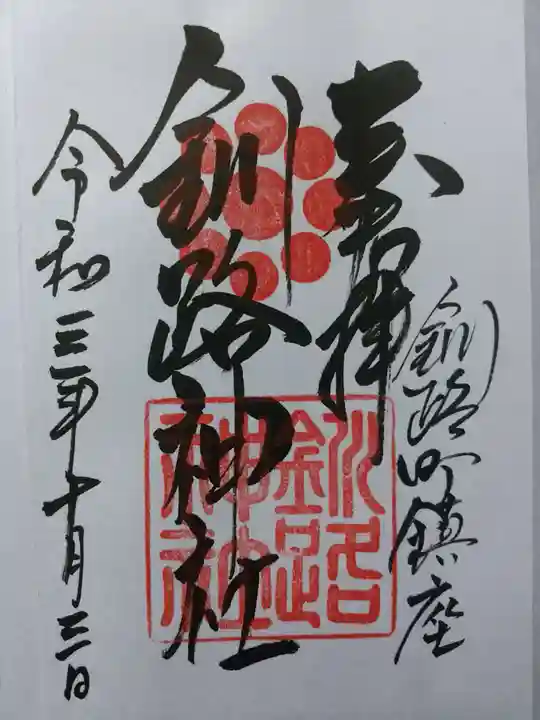 釧路町鎮座
奉拝
釧路神社
釧路
神社
令和三年十月三日